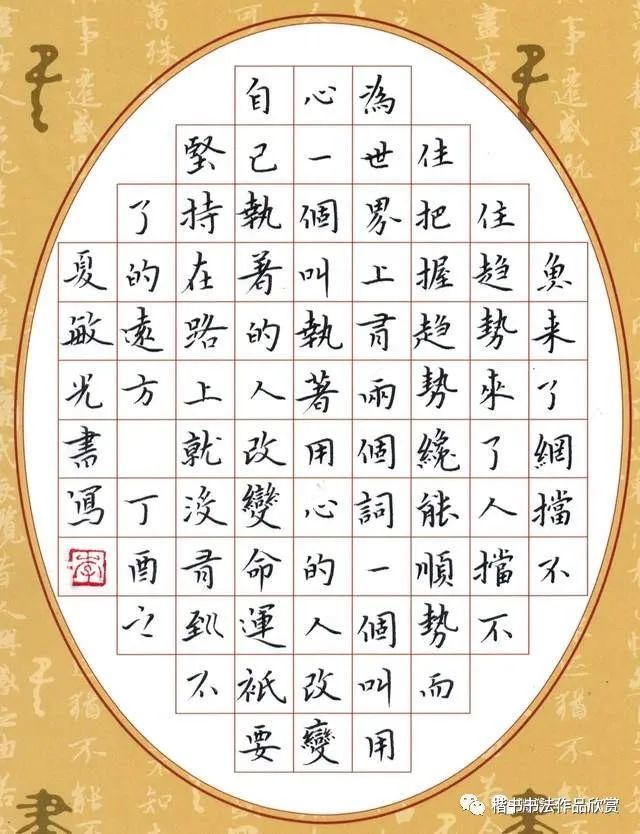 魚来了網擋不
住趋勢來了人擋不
住把握趋勢纔能順勢而
為世界上有兩個詞一個叫用
心一個叫執著用心的人改變
自己執著的人改變命運衹要
緊持在路上就沒有到不
了的遠方 丁酉之
夏敏光書寫
楷书书法作品欣赏